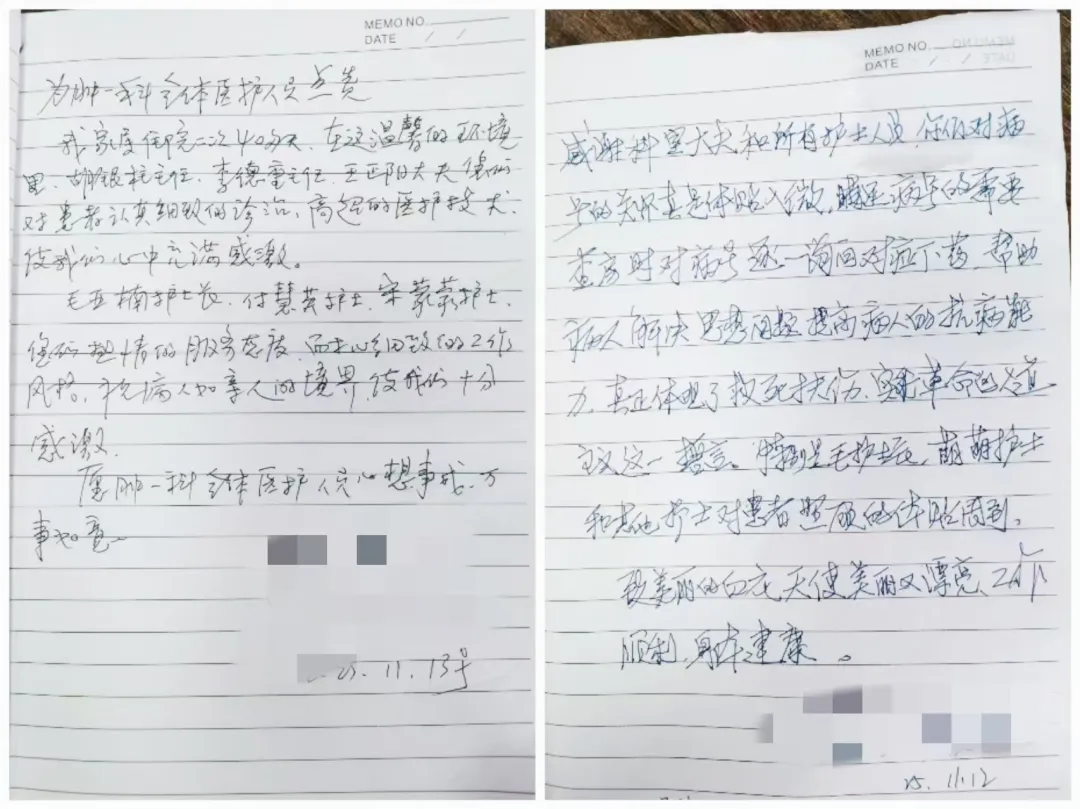 MEMO NO.
DATE / /
为肿一科全体医护人员点赞
我家属住院二次40多天，在这温馨的环境
里，胡银柱主任，李德重主任，王邵阳大夫，您们
对患者认真细致的诊治，高超的医护技术，
使我们心中充满感激。
毛亚楠护士长，付慧芸护士，宋蒙蒙护士，
您们热情的服务态度，耐心细致的工作
风格，和把病人如亲人的境界，使我们十分
感激。
愿肿一科全体医护人员心想事成，万
事如意。
25.11.13号
MEMO NO.
DATE / /
感谢科室大夫和所有护士人员，你们对病
号的关怀真是体贴入微，满足病号的需要
查房时对病号逐一询问对症下药，帮助
病人解决思想问题提高病人的抗病能
力，真正体现了救死扶伤，实行革命的人道
主义这一誓言。特别是毛护士长，萌萌护士
和其他护士对患者照顾的体贴周到。
致美丽的白衣天使美丽又漂亮，工作
顺利，身体健康。
25.11.12